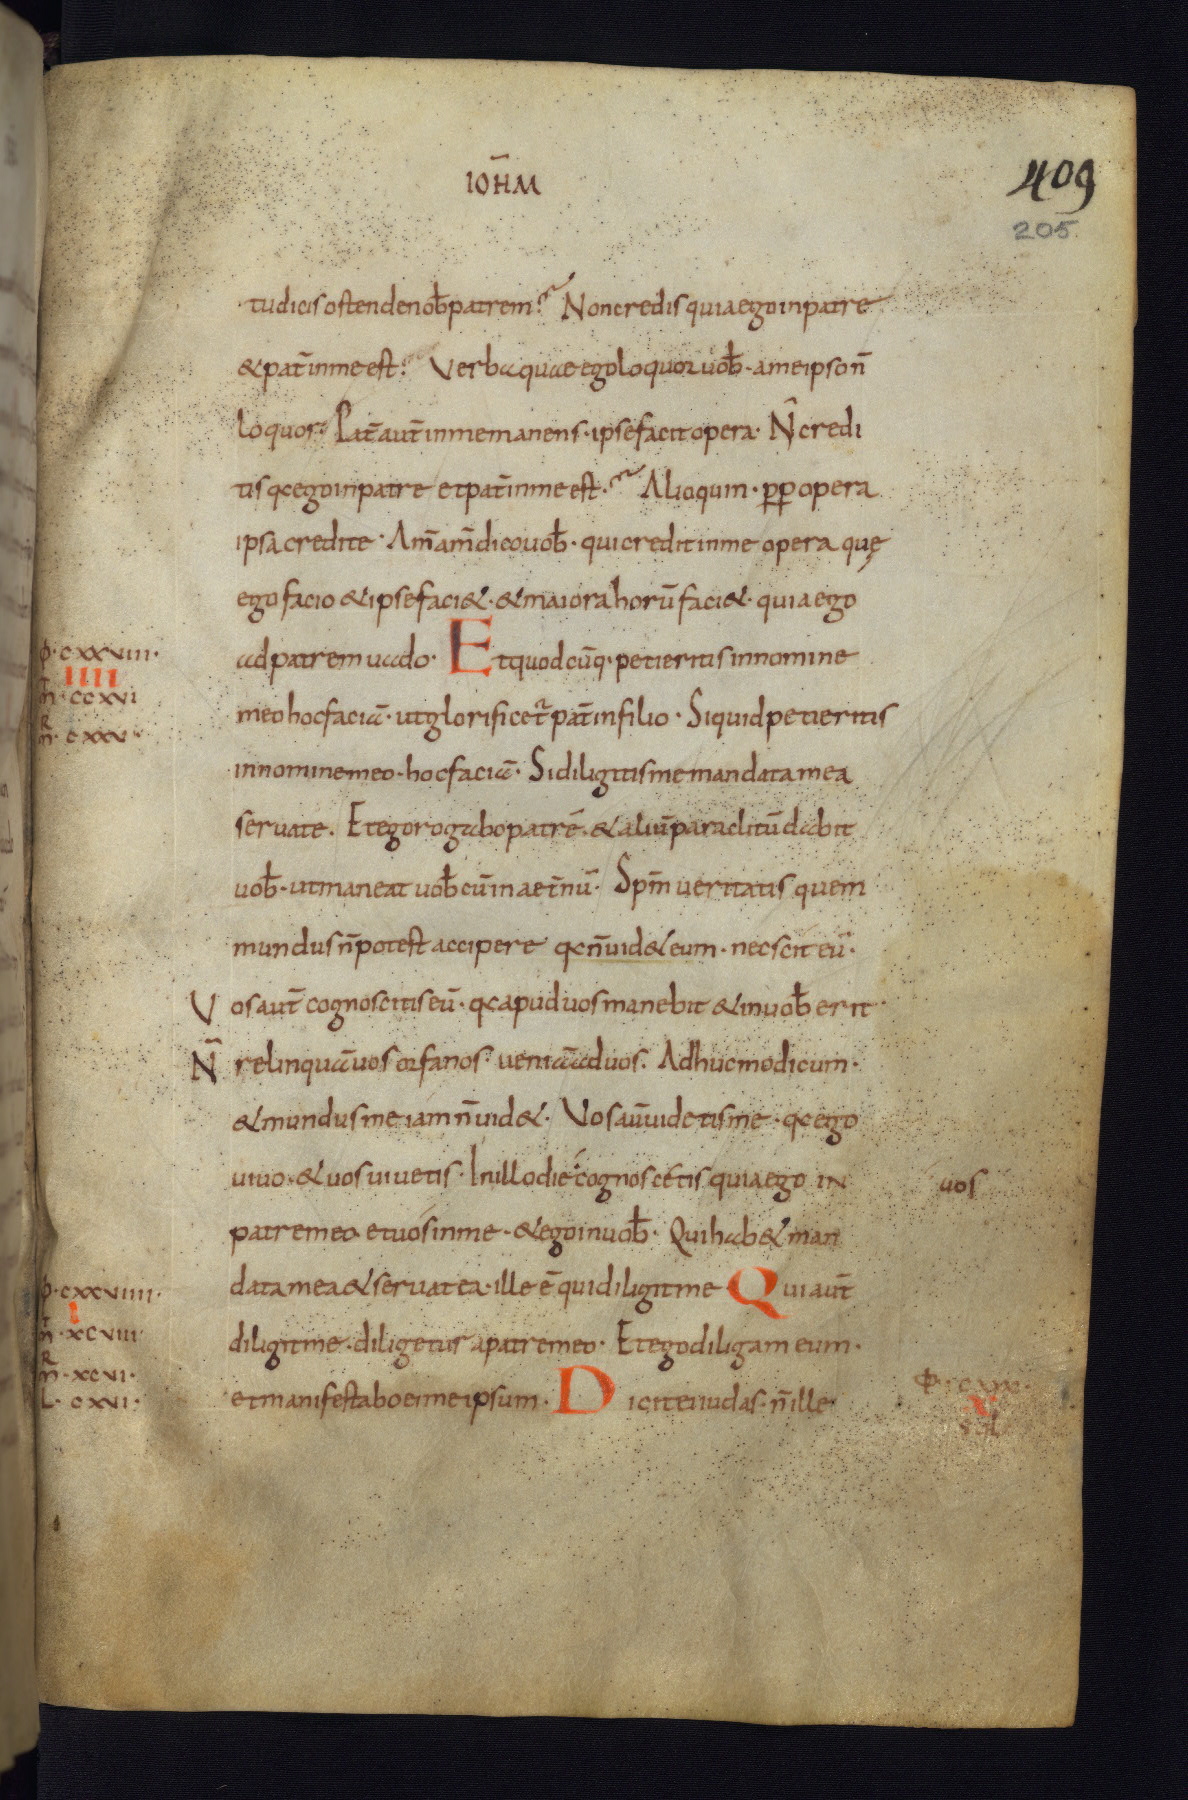 IOH̄M
409
205
tu dicis ostende nob̄ patrem? Non credis quia ego in patre
& pat̄ in me est? Verba quae ego loquor uob̄ · a me ipso n̄
loquor· Pat̄ aut̄ in me manens · ipse facit opera· N̄ credi
tis qc ego in patre et pat̄ in me est? Alioquin · ꝓꝑ opera
ipsa credite· Am̄ am̄ dico uob̄ · qui credit in me opera quę
ego facio & ipse faci&· & maiora horū faci&· quia ego
ad patrem uado· Et quodcūq· petieritis in nomine
meo hoc faciā· ut glorificet̄ pat̄ in filio· Si quid petieritis
in nomine meo· hoc faciā· Si diligitis me mandata mea
seruate. Et ego rogabo patrē· & aliū paraclitū dabit
uob̄· ut maneat uob̄cū in aet̄nū· Sp̄m ueritatis quem
mundus n̄ potest accipere qc n̄ uid& eum· nec scit eū·
Vos aut̄ cognoscitis eū· qc apud uos manebit & in uob̄ erit·
N̄ relinquā uos orfanos· ueniā ad uos· Adhuc modicum·
& mundus me iam n̄ uid&· Vos aū uidetis me· qc ego
uiuo· & uos uiuetis· In illo die cognoscetis quia ego in
uos
patre meo· et uos in me· & ego in uob̄· Qui hab& man
data mea & seruat ea· ille ē qui diligit me Qui aut̄
diligit me· diligetur a patre meo· Et ego diligam eum·
et manifestabo ei me ipsum· Dicit ei iudas· n̄ ille
ϕ·cxxviii·
iiii
m̄·ccxvi
m̄·cxxv·
ϕ·cxxviiii·
i
m̄·xcviii
m̄·xcvi·
L·cxvi·
ϕ·cxxx·
x